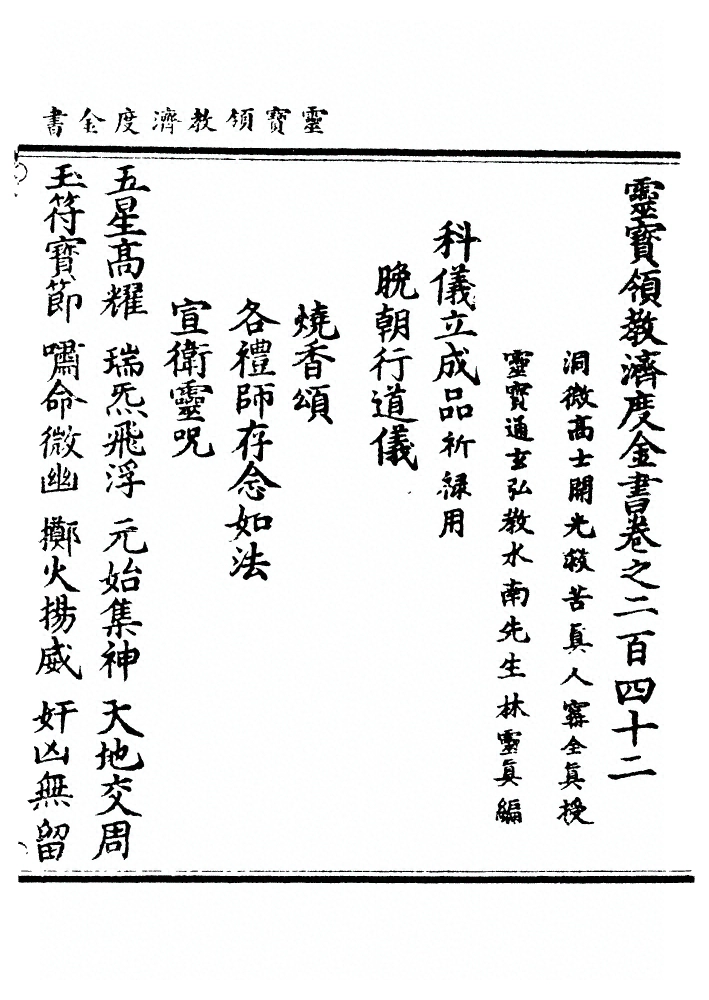 靈寶領教濟度金書
靈寶領教濟度金書卷之二百四十二
洞微高士開光救苦真人甯全真授
靈寶通玄弘教水南先生林靈真編
科儀立成品祈禄用
晚朝行道儀
燒香頌
各禮師存念如法
宣衛靈呪
五星高耀 瑞炁飛浮 元始集神 天地交周
玉符寶節 嘯命微幽 擲火揚威 奸凶無留